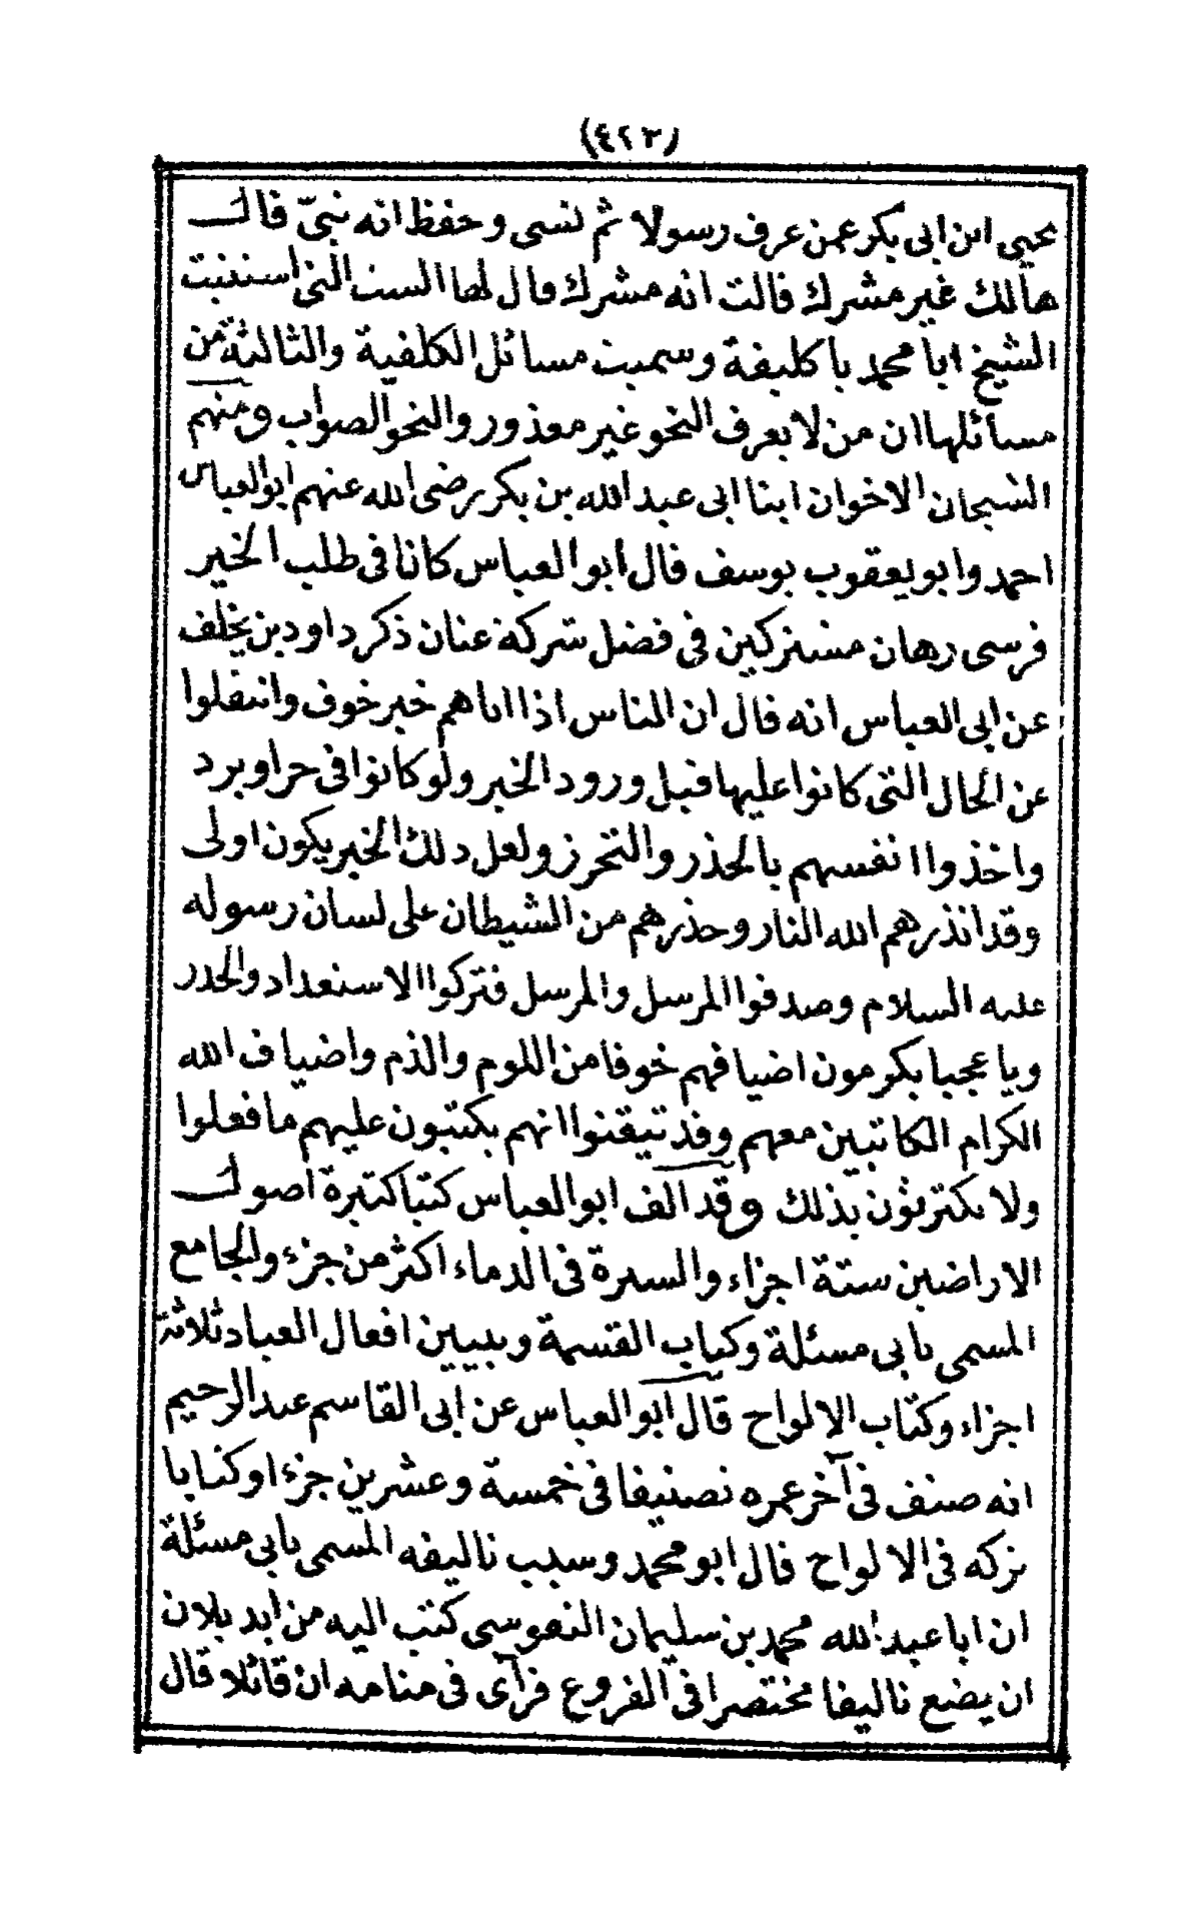 (٤٢٣)
يحيى ابن ابى بكر عمن عرف رسولا ثم نسى وحفظ انه نبىّ قال
هالك غير مشرك قالت انه مشرك قال لها الست التى استنبت
الشيخ ابا محمد با كليفة وسميت مسائل الكلفية والثالثة من
مسائلها ان من لا يعرف النحو غير معذور والنحو الصواب ومنهم
الشيخان الاخوان ابنا ابى عبد الله بن بكر رضى الله عنهم ابو العباس
احمد وابو يعقوب يوسف قال ابو العباس كانا فى طلب الخير
فرسى رهان مشتركين فى فضل شركة عنان ذكر داود بن يخلف
عن ابى العباس انه قال ان الناس اذا اتاهم خبر خوف وانتقلوا
عن الحال التى كانوا عليها قبل ورود الخبر ولو كانوا فى حر او برد
واخذوا انفسهم بالحذر والتحرز ولعل ذلك الخبر يكون اولى
وقد انذرهم الله النار وحذرهم من الشيطان على لسان رسوله
عليه السلام وصدقوا المرسل والمرسل فتركوا الاستعداد والحذر
ويا عجبا يكرمون اضيافهم خوفا من اللوم والذم واضياف الله
الكرام الكاتبين معهم وقد تيقنوا انهم يكتبون عليهم ما فعلوا
ولا يكترثون بذلك وقد الف ابو العباس كتبا كثيرة اصول
الاراضين ستة اجزاء والسيرة فى الدماء اكثر من جزء والجامع
المسمى بابى مسئلة وكتاب القسمة وتبيين افعال العباد ثلاثة
اجزاء وكتاب الالواح قال ابو العباس عن ابى القاسم عبد الرحيم
انه صنف فى آخر عمره تصنيفا فى خمسة وعشرين جزءا وكتابا
تركه فى الالواح قال ابو محمد وسبب تاليفه المسمى بابى مسئلة
ان ابا عبد الله محمد بن سليمان النفوسى كتب اليه من ابديلان
ان يضع تاليفا مختصرا فى الفروع فرآى فى منامه ان قائلا قال